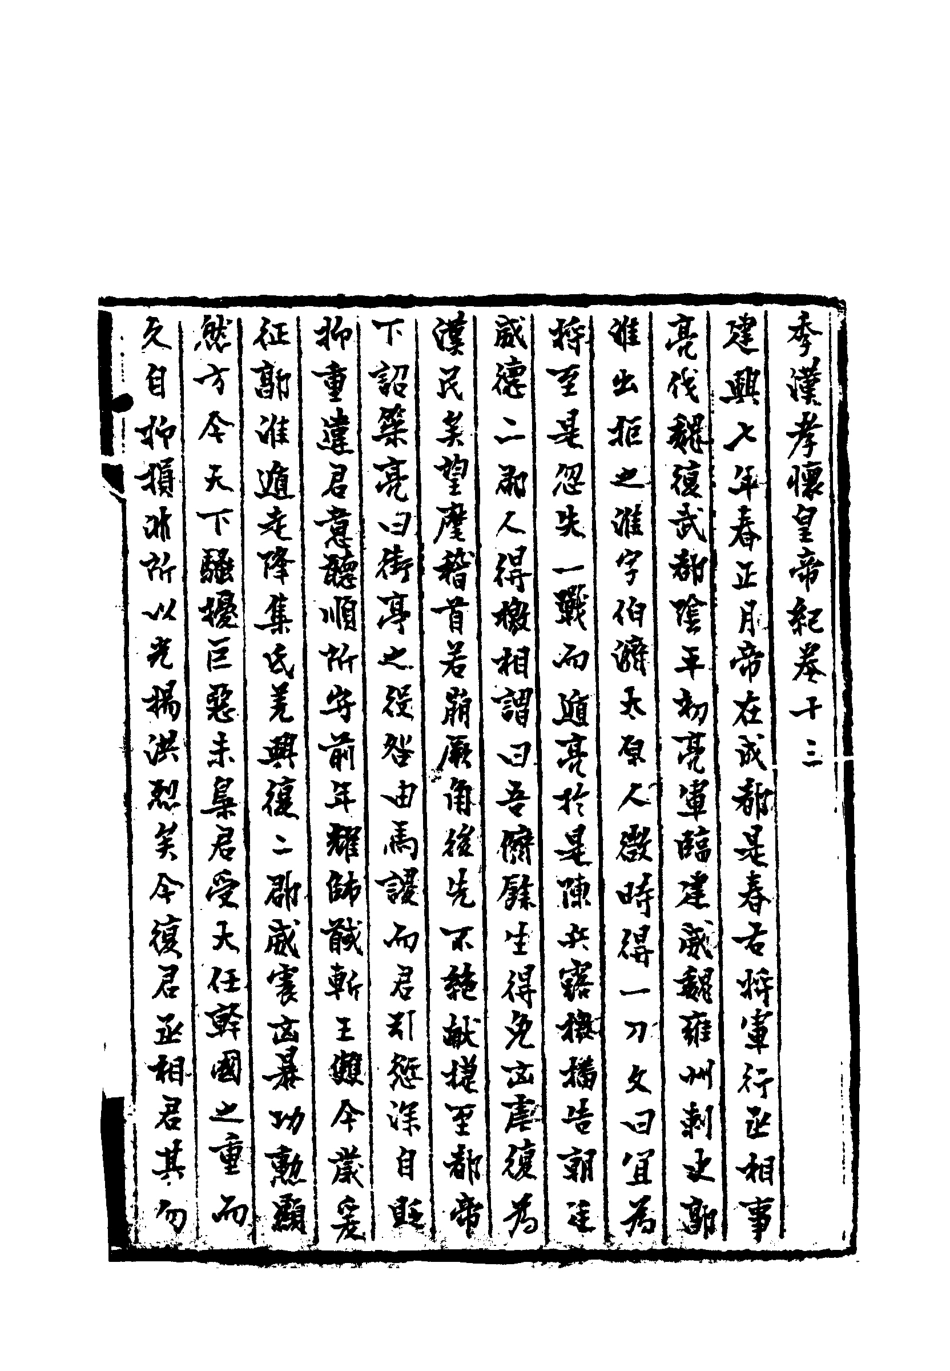 季漢孝懷皇帝紀卷十三
建興七年春正月帝在成都是春右將軍行丞相事
亮伐魏復武都陰平初亮軍臨建威魏雍州刺史郭
淮出拒之淮字伯濟太原人微時得一刀文曰宜為
將至是忽失一戰而遁亮於是陳兵露檄播告朝廷
威德二郡人得檄相謂曰吾儕餘生得免凶虐復為
漢民矣望麾稽首若崩厥角後先不絕献捷至都帝
下詔策亮曰街亭之役咎由馬謖而君引愆深自貶
抑重違君意聽順所守前年耀師馘斬王雙今歲爰
征郭淮遁走降集氐羌興復二郡威震凶暴功勳顯
然方今天下騷擾巨惡未梟君受大任幹國之重而
久自抑損非所以光揚洪烈矣今復君丞相君其勿